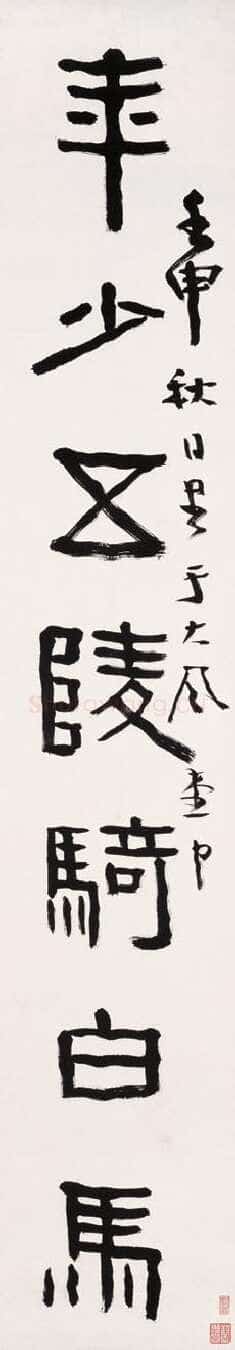 壬申秋日書于大风堂中
年少五陵騎白馬